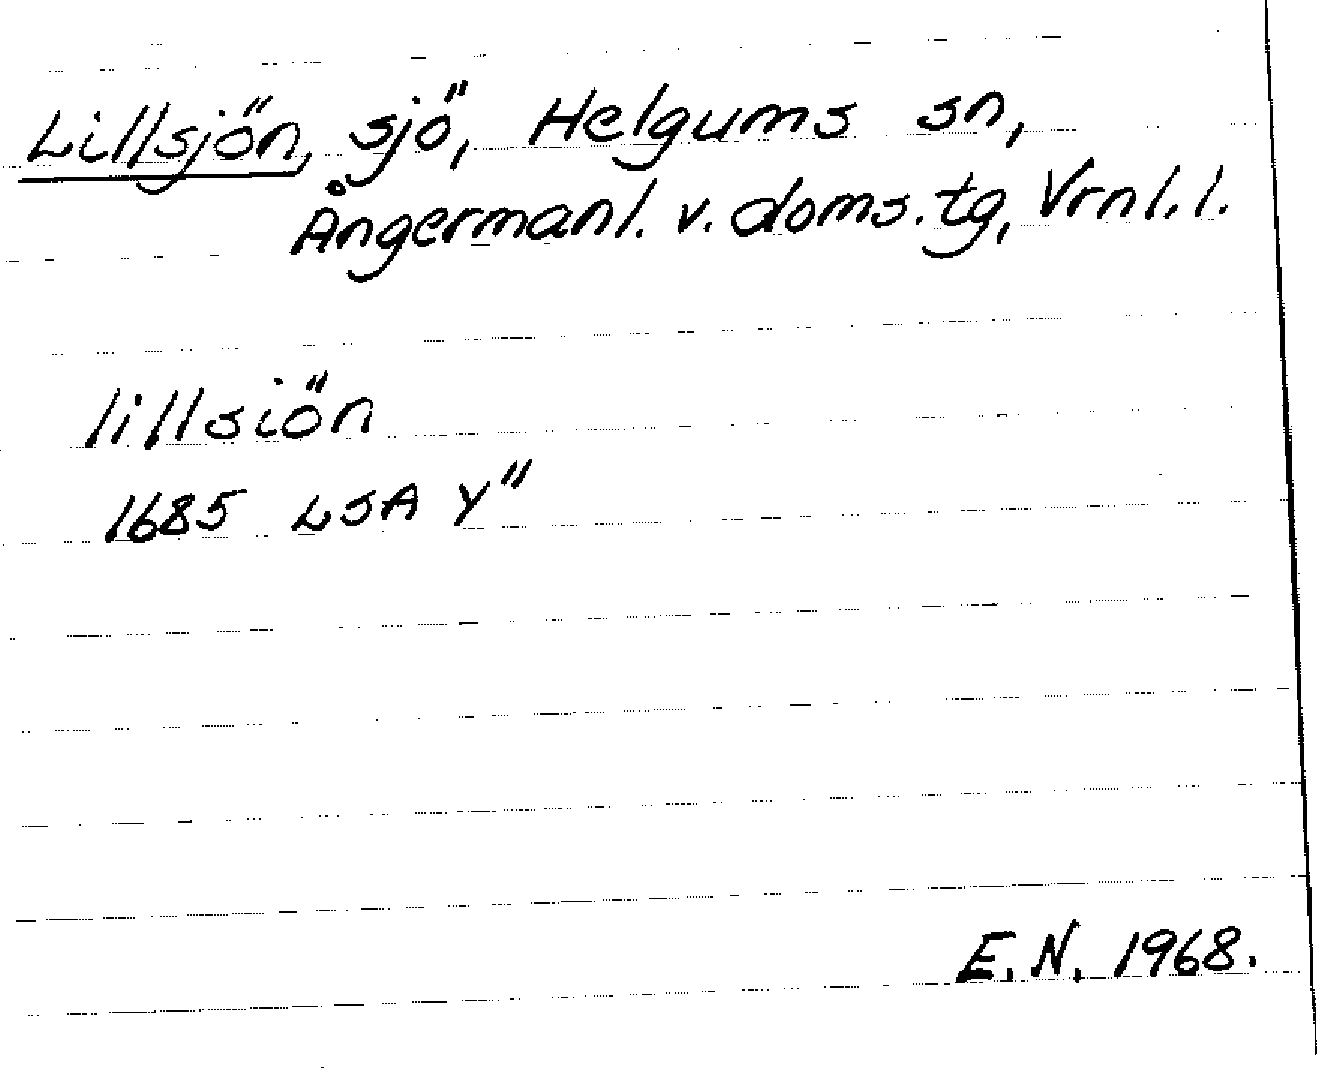 Lillsjön, sjö, Helgums sn,
Ångermanl. v. doms. tg, Vrnl. l.
lillsiön
1685 LSA Y"
E.N. 1968.